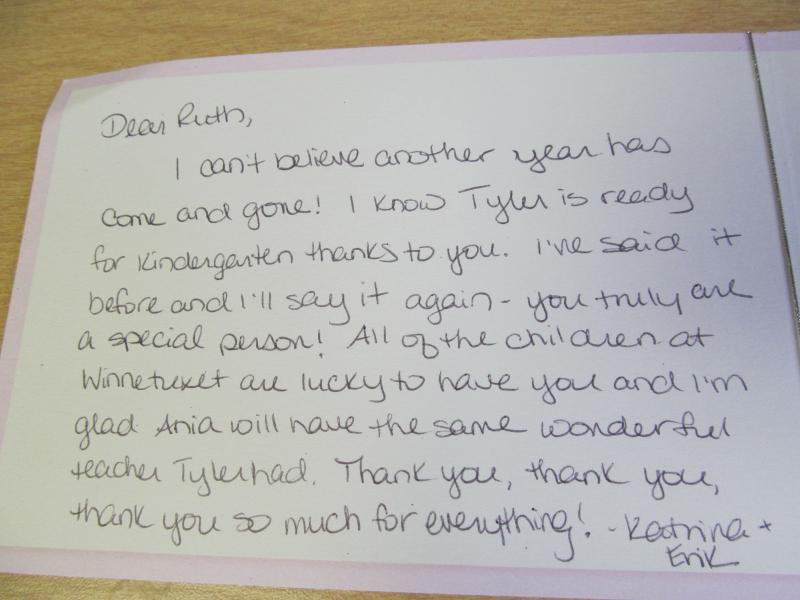 Dear Ruth,
I can't believe another year has
come and gone! I know Tyler is ready
for Kindergarten thanks to you. I've said it
before and I'll say it again - you truly are
a special person! All of the children at
Winnetuket are lucky to have you and I'm
glad Ania will have the same wonderful
teacher Tyler had. Thank you, thank you,
thank you so much for everything! - Katrina +
Erik